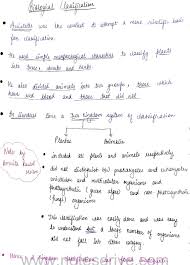 Biological Classification
• Aristotle was the earliest to attempt a more scientific basis
for classification.
• He used simple morphological characters to classify plants
into trees, shrubs and herbs.
• He also divided animals into two groups, those which
had red blood and those that did not.
• In Linnaeus' time a Two Kingdom system of classification
Plantae
Animalia
• included all plants and animals respectively
Notes by
• did not distinguish b/w prokaryotes and eukaryotes
unicellular and multicellular organisms and
photosynthetic (green algae) and non-photosynthetic
(fungi) organisms.
• This classification was easily done and was easy
to understand but a large number of organisms
did not fall into either category.
www.notesdrive.com